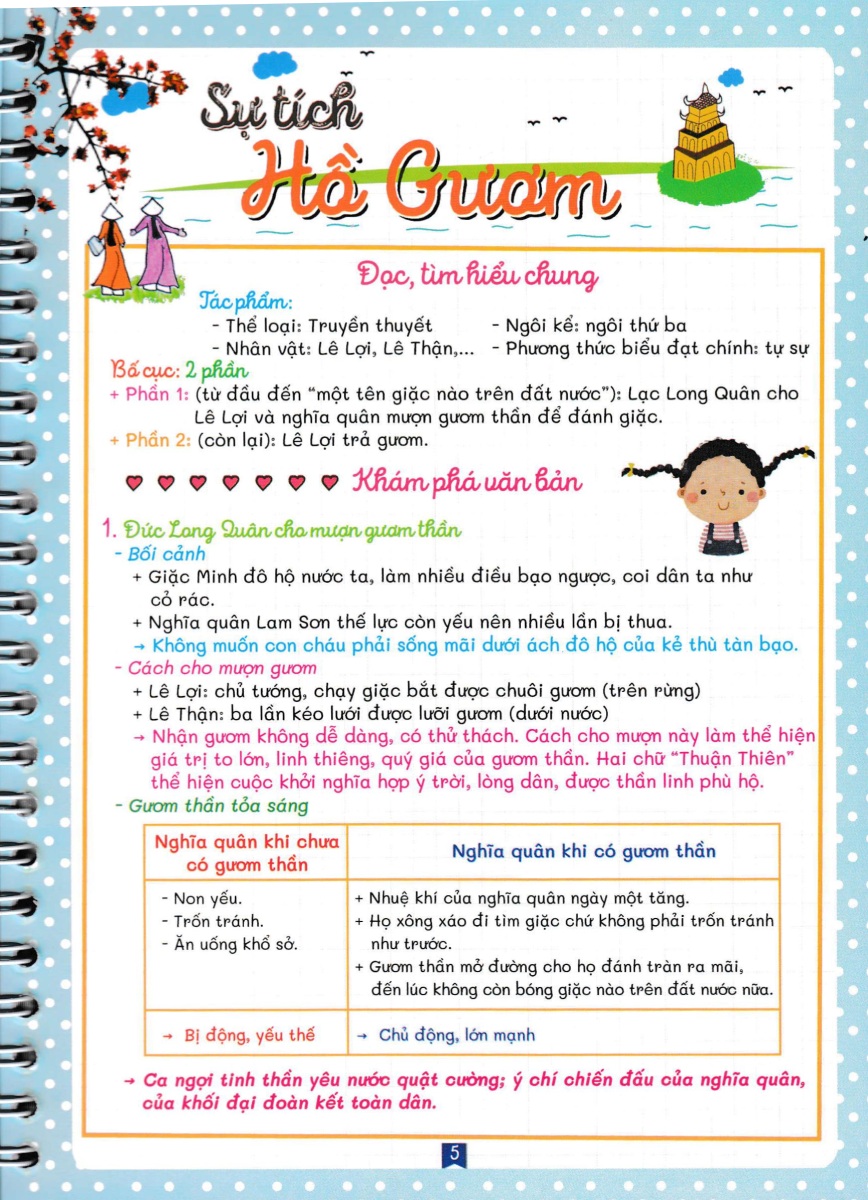 Sự tích
Hồ Gươm
Đọc, tìm hiểu chung
Tác phẩm:
- Thể loại: Truyền thuyết
- Nhân vật: Lê Lợi, Lê Thận,...
- Ngôi kể: ngôi thứ ba
- Phương thức biểu đạt chính: tự sự
Bố cục: 2 phần
+ Phần 1: (từ đầu đến “một tên giặc nào trên đất nước”): Lạc Long Quân cho
Lê Lợi và nghĩa quân mượn gươm thần để đánh giặc.
+ Phần 2: (còn lại): Lê Lợi trả gươm.
Khám phá văn bản
1. Đức Long Quân cho mượn gươm thần
- Bối cảnh
+ Giặc Minh đô hộ nước ta, làm nhiều điều bạo ngược, coi dân ta như
cỏ rác.
+ Nghĩa quân Lam Sơn thế lực còn yếu nên nhiều lần bị thua.
→ Không muốn con cháu phải sống mãi dưới ách đô hộ của kẻ thù tàn bạo.
- Cách cho mượn gươm
+ Lê Lợi: chủ tướng, chạy giặc bắt được chuôi gươm (trên rừng)
+ Lê Thận: ba lần kéo lưới được lưỡi gươm (dưới nước)
→ Nhận gươm không dễ dàng, có thử thách. Cách cho mượn này làm thể hiện
giá trị to lớn, linh thiêng, quý giá của gươm thần. Hai chữ “Thuận Thiên”
thể hiện cuộc khởi nghĩa hợp ý trời, lòng dân, được thần linh phù hộ.
- Gươm thần tỏa sáng
Nghĩa quân khi chưa
có gươm thần
Nghĩa quân khi có gươm thần
- Non yếu.
- Trốn tránh.
- Ăn uống khổ sở.
+ Nhuệ khí của nghĩa quân ngày một tăng.
+ Họ xông xáo đi tìm giặc chứ không phải trốn tránh
như trước.
+ Gươm thần mở đường cho họ đánh tràn ra mãi,
đến lúc không còn bóng giặc nào trên đất nước nữa.
→ Bị động, yếu thế
→ Chủ động, lớn mạnh
→ Ca ngợi tinh thần yêu nước quật cường; ý chí chiến đấu của nghĩa quân,
của khối đại đoàn kết toàn dân.
5